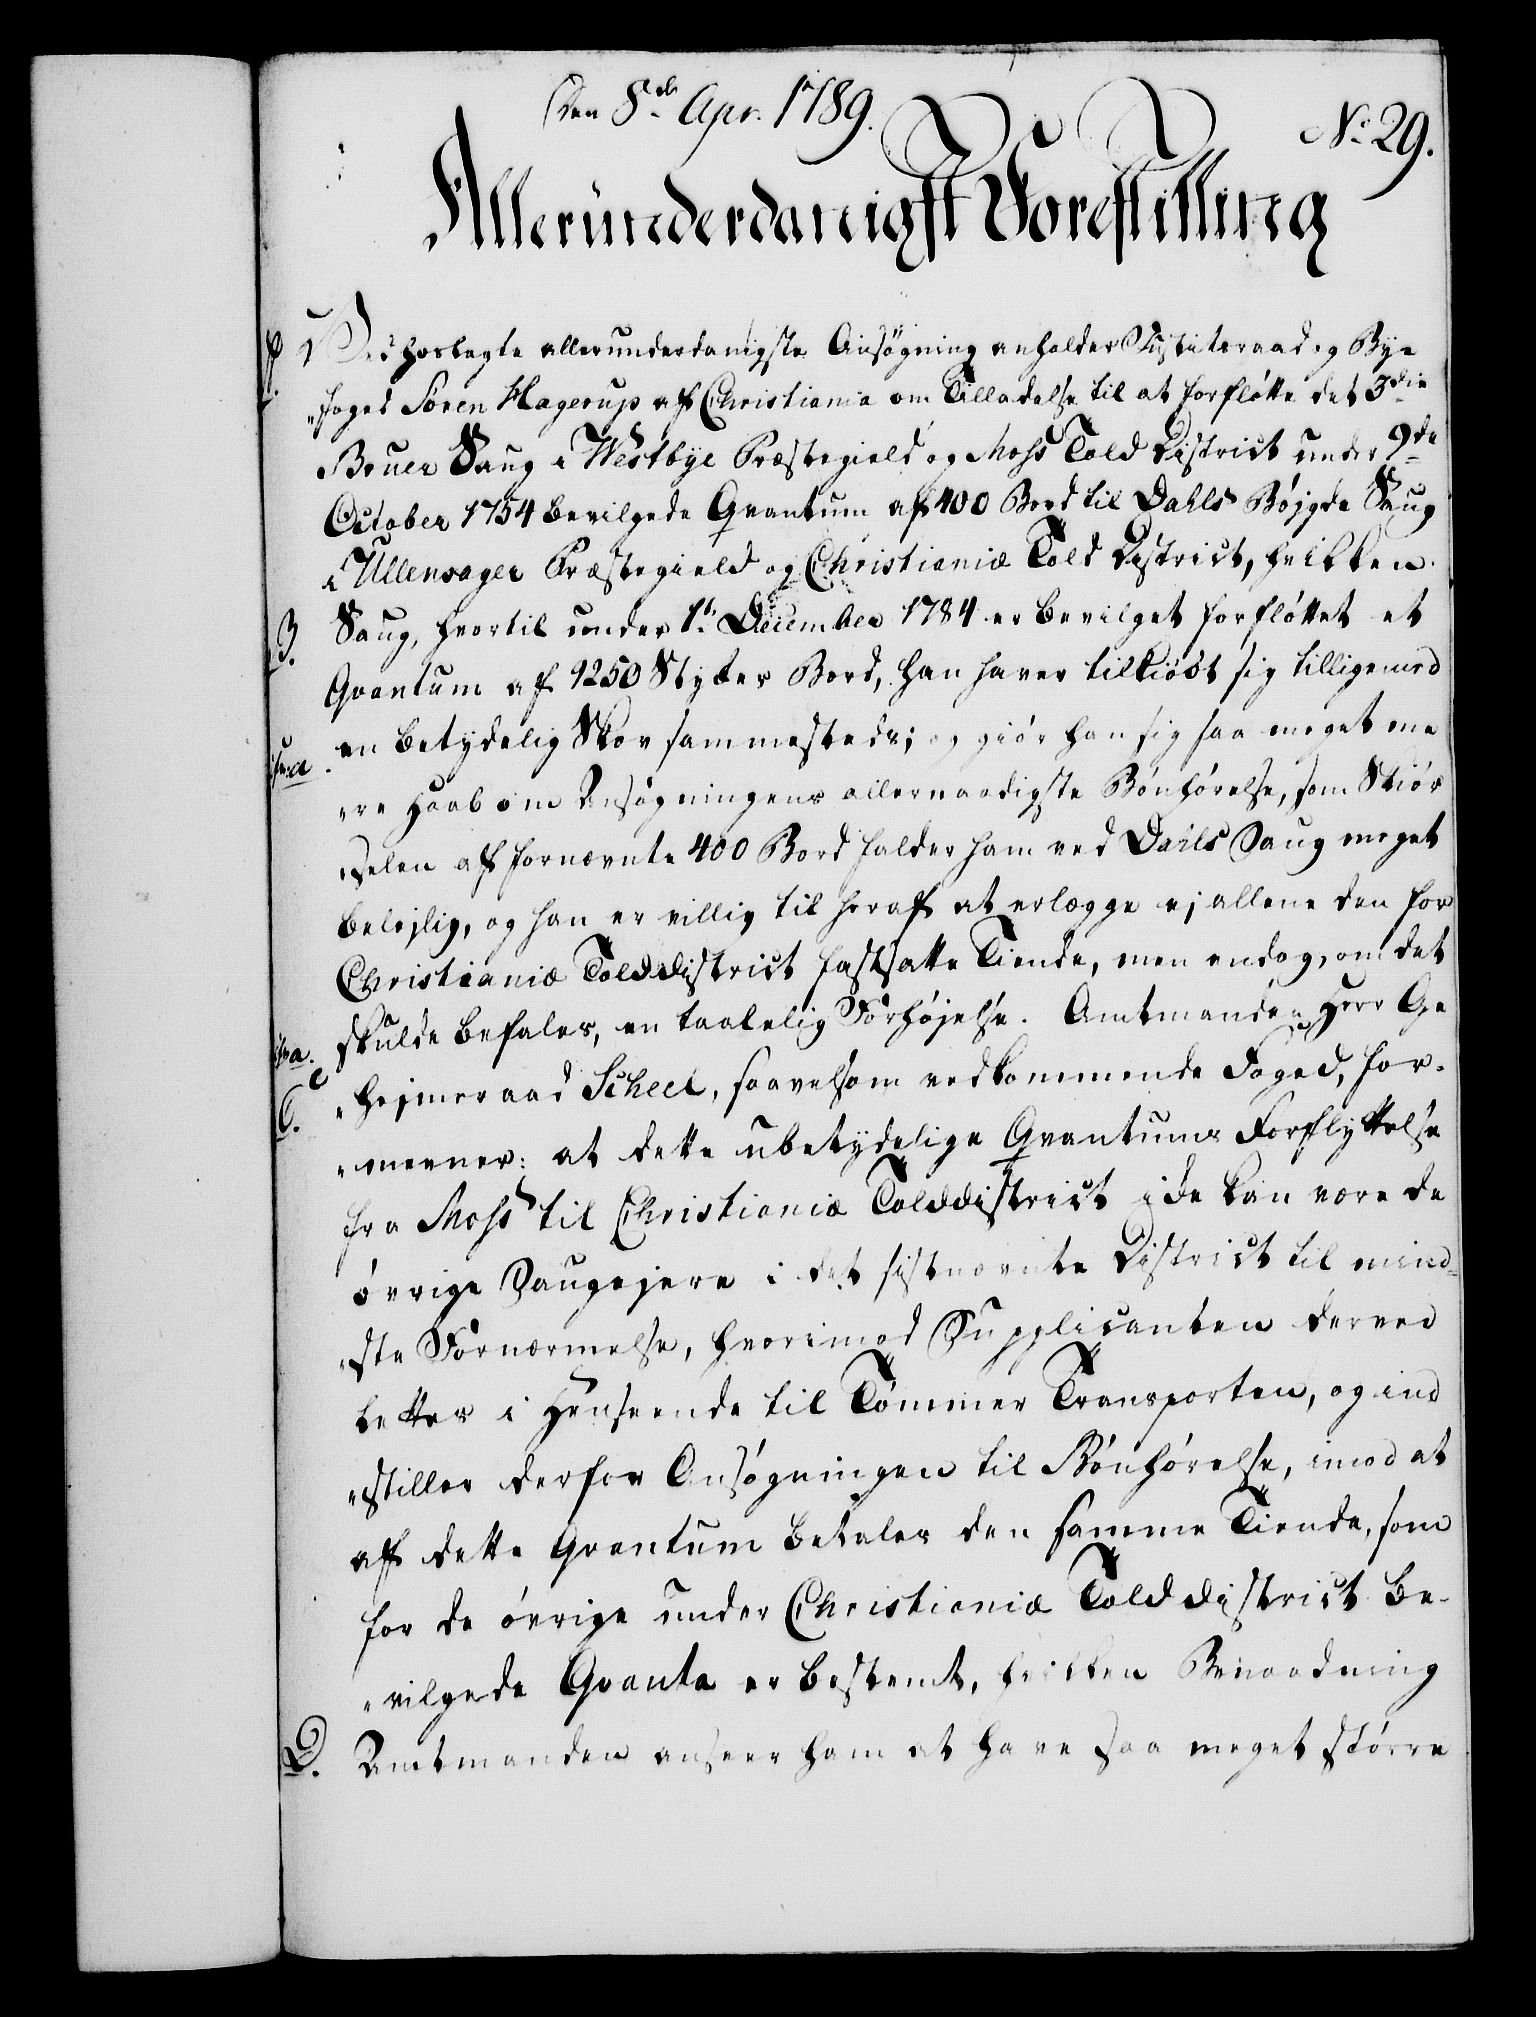 Den 8de Apr. 1789.
No 29.
Allerunderdanigst Forestilling
I hoslagte allerunderdanigste Ansøgning anholder Justitsraad og Bye
"foged Sören Hagerup af Christiania om Tilladelse til at forfløtte det 3die
Bruer Saug i Westbye Præstegield og Moss Told District under 9de
October 1754 bevilgede Qvantum af 400 Bord til Dahls Bøjgde Saug
i Ullensager Præstegield og Christianiæ Told District, hvilken
B. Saug, hvortil under 1te December 1784 er bevilget forfløttet et
Qvantum af 1250 Stykker Bord, han haver tilkiøbt sig tilligemed
en betydelig Skov sammesteds; og giør han sig saa meget me
"re Haab om Ansøgningens allernaadigste Bønhørelse, som Skiør
"selen af fornævnte 400 Bord falder ham ved Dahls Saug meget
belejlig, og han er villig til heraf at erlægge ej allene den for
Christianiæ Tolddistrict fastsatte Tiende, men endog, om det
skulde befales, en taalelig Forhøjelse. Amtmanden Herr Ge
C. "hejmeraad Scheel, saavelsom vedkommende Foged, for-
"meener: at dette ubetydelige Qvantums Forflyttelse
fra Moss til Christianiæ Tolddistrict ikke kan være de
øvrige Saugejere i det sistnævnte District til mind-
"ste Fornærmelse, hvorimod Supplicanten derved
lettes i Henseende til Tømmer Transporten, og ind
"stiller derfor Ansøgningen til Bønhørelse, imod at
af dette Qvantum betales den samme Tiende, som
for de øvrige under Christianiæ Tolddistrict be-
"vilgede Qvanta er bestemt, hvilken Benaadning
D. Amtmanden anseer ham at have saa meget større